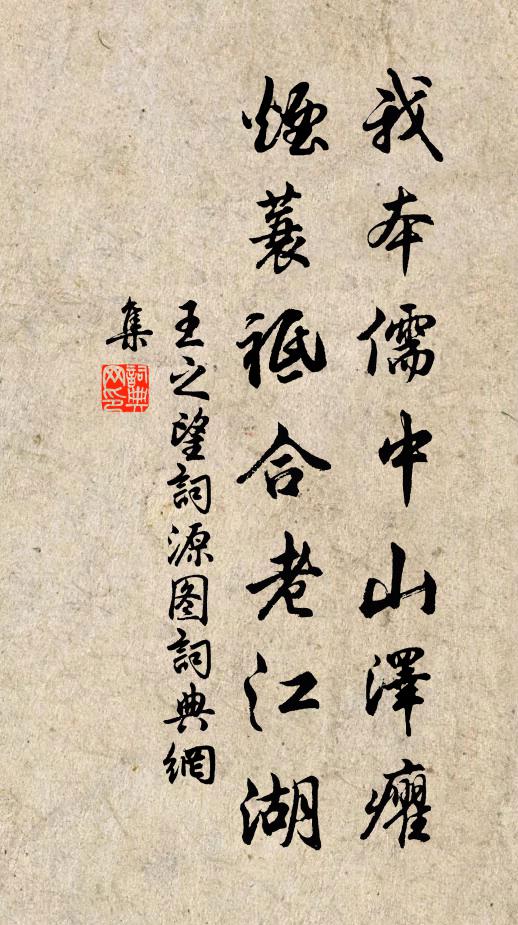 我本儒中山澤癯
煙蓑祗合老江湖
王之望詞源图詞典網
集
詞典网印